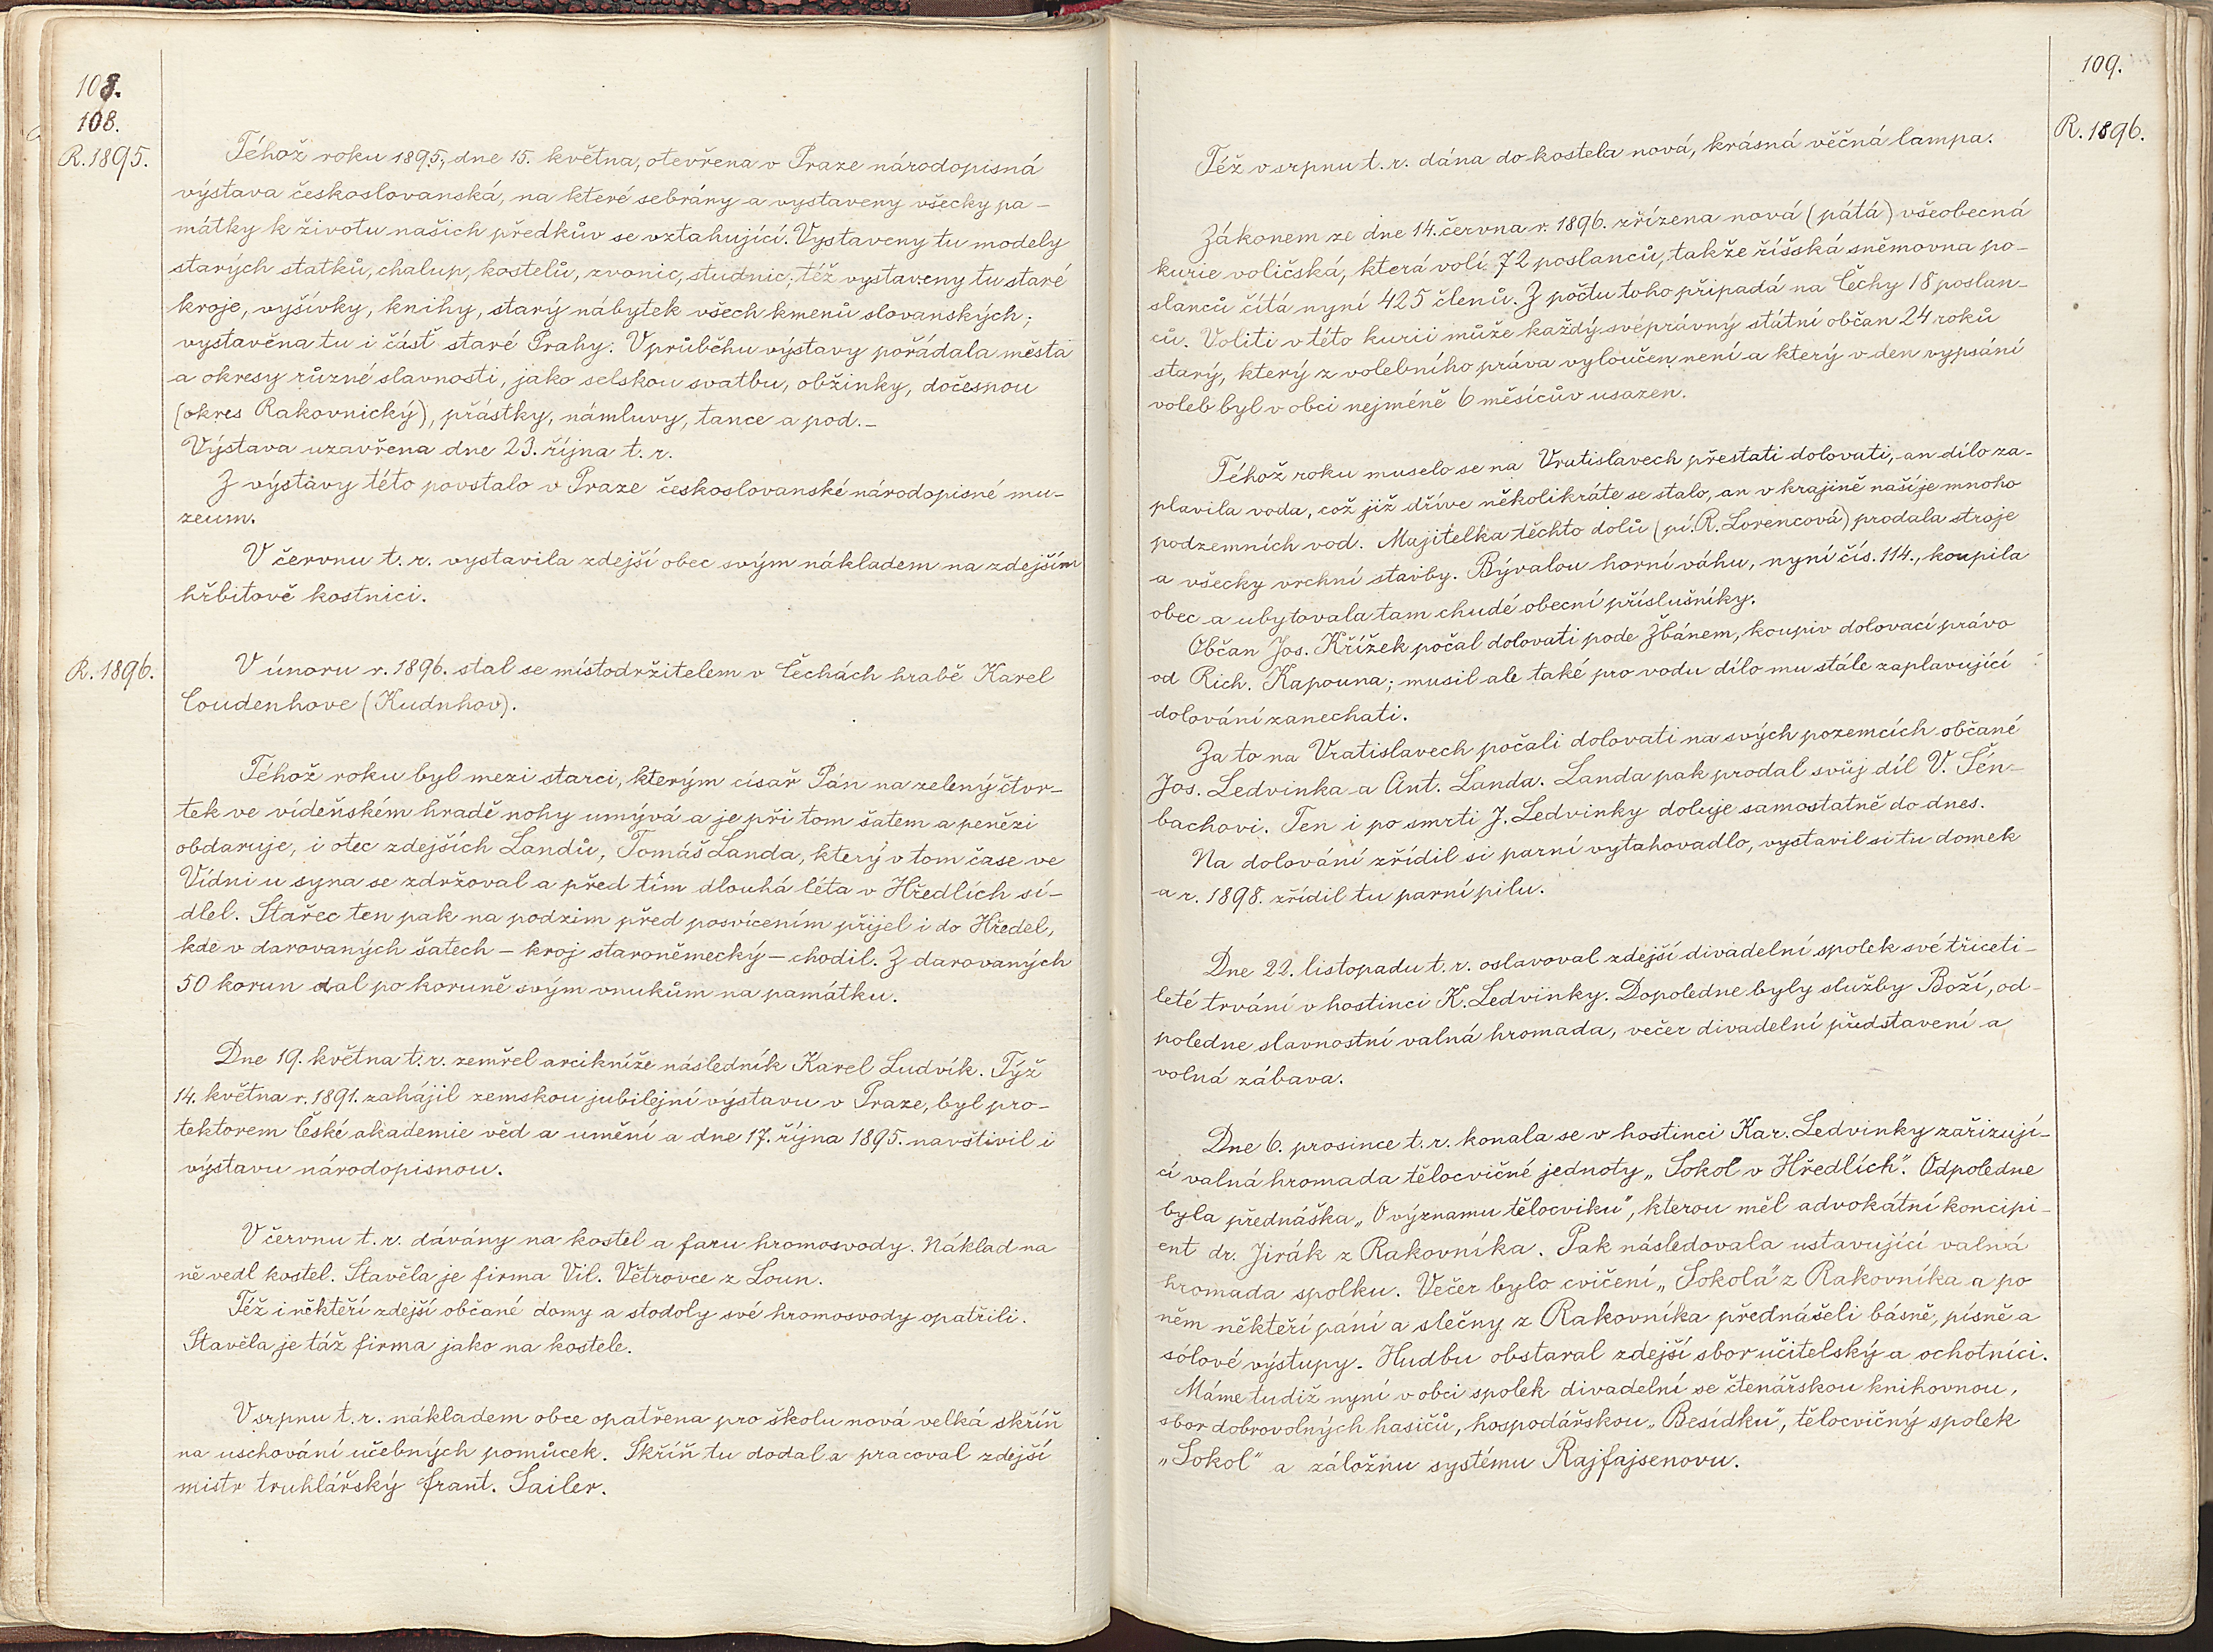 108.
108.
R. 1895.
Téhož roku 1895, dne 15. května, otevřena v Praze národopisná
výstava českoslovanská, na které sebrány a vystaveny všecky pa-
mátky k životu našich předkův se vztahující. Vystaveny tu modely
starých statků, chalup, kostelů, zvonic, studnic; též vystaveny tu staré
kroje, vyšívky, knihy, starý nábytek všech kmenů slovanských;
vystavěna tu i část staré Prahy. V průběhu výstavy pořádala města
a okresy různé slavnosti, jako selskou svatbu, obžinky, dočesnou
(okres Rakovnický), přástky, námluvy, tance a pod. –
Výstava uzavřena dne 23. října t. r.
Z výstavy této povstalo v Praze českoslovanské národopisné mu-
zeum.
V červnu t. r. vystavila zdejší obec svým nákladem na zdejším
hřbitově kostnici.
R. 1896.
V únoru r. 1896. stal se místodržitelem v Čechách hrabě Karel
Coudenhove (Kudnhov).
Téhož roku byl mezi starci, kterým císař Pán na zelený čtvr-
tek ve vídeňském hradě nohy umývá a je při tom šatem a penězi
obdaruje, i otec zdejších Landů, Tomáš Landa, který v tom čase ve
Vídni u syna se zdržoval a před tím dlouhá léta v Hředlích sí-
dlel. Stařec ten pak na podzim před posvícením přijel i do Hředel,
kde v darovaných šatech – kroj staroněmecký – chodil. Z darovaných
50 korun dal po koruně svým vnukům na památku.
Dne 19. května t. r. zemřel arcikníže následník Karel Ludvík. Týž
14. května r. 1891. zahájil zemskou jubilejní výstavu v Praze, byl pro-
tektorem České akademie věd a umění a dne 17. října 1895. navštívil i
výstavu národopisnou.
V červnu t. r. dávány na kostel a faru hromosvody. Náklad na
ně vedl kostel. Stavěla je firma Vil. Větrovce z Loun.
Též i někteří zdejší občané domy a stodoly své hromosvody opatřili.
Stavěla je táž firma jako na kostele.
V srpnu t. r. nákladem obce opatřena pro školu nová velká skříň
na uschování učebných pomůcek. Skříň tu dodal a pracoval zdejší
mistr truhlářský Frant. Sailer.
109.
R. 1896.
Též v srpnu t. r. dána do kostela nová, krásná věčná lampa.
Zákonem ze dne 14. června r. 1896. zřízena nová (pátá) všeobecná
kurie voličská, která volí 72 poslanců, takže říšská sněmovna po-
slanců čítá nyní 425 členů. Z počtu toho připadá na Čechy 18 poslan-
ců. Voliti v této kurii může každý svéprávný státní občan 24 roků
starý, který z volebního práva vyloučen není a který v den vypsání
voleb byl v obci nejméně 6 měsícův usazen.
Téhož roku muselo se na Vratislavech přestati dolovati, an dílo za-
plavila voda, což již dříve několikráte se stalo, an v krajině naší je mnoho
podzemních vod. Majitelka těchto dolů (pí. R. Lorencová) prodala stroje
a všecky vrchní stavby. Bývalou horní váhu, nyní čís. 114., koupila
obec a ubytovala tam chudé obecní příslušníky.
Občan Jos. Křížek počal dolovati pode Žbánem, koupiv dolovací právo
od Rich. Kapouna; musil ale také pro vodu dílo mu stále zaplavující
dolování zanechati.
Za to na Vratislavech počali dolovati na svých pozemcích občané
Jos. Ledvinka a Ant. Landa. Landa pak prodal svůj díl V. Šén-
bachovi. Ten i po smrti J. Ledvinky doluje samostatně do dnes.
Na dolování zřídil si parní vytahovadlo, vystavil si tu domek
a r. 1898. zřídil tu parní pilu.
Dne 22. listopadu t. r. oslavoval zdejší divadelní spolek své třiceti-
leté trvání v hostinci K. Ledvinky. Dopoledne byly služby Boží, od-
poledne slavnostní valná hromada, večer divadelní představení a
volná zábava.
Dne 6. prosince t. r. konala se v hostinci Kar. Ledvinky zařizují-
cí valná hromada tělocvičné jednoty „Sokol v Hředlích“. Odpoledne
byla přednáška „O významu tělocviku“, kterou měl advokátní koncipi-
ent dr. Jirák z Rakovníka. Pak následovala ustavující valná
hromada spolku. Večer bylo cvičení „Sokola“ z Rakovníka a po
něm někteří páni a slečny z Rakovníka přednášeli básně, písně a
sólové výstupy. Hudbu obstaral zdejší sbor učitelský a ochotníci.
Máme tudíž nyní v obci spolek divadelní se čtenářskou knihovnou,
sbor dobrovolných hasičů, hospodářskou „Besídku“, tělocvičný spolek
„Sokol“ a záložnu systému Rajfajsenovu.